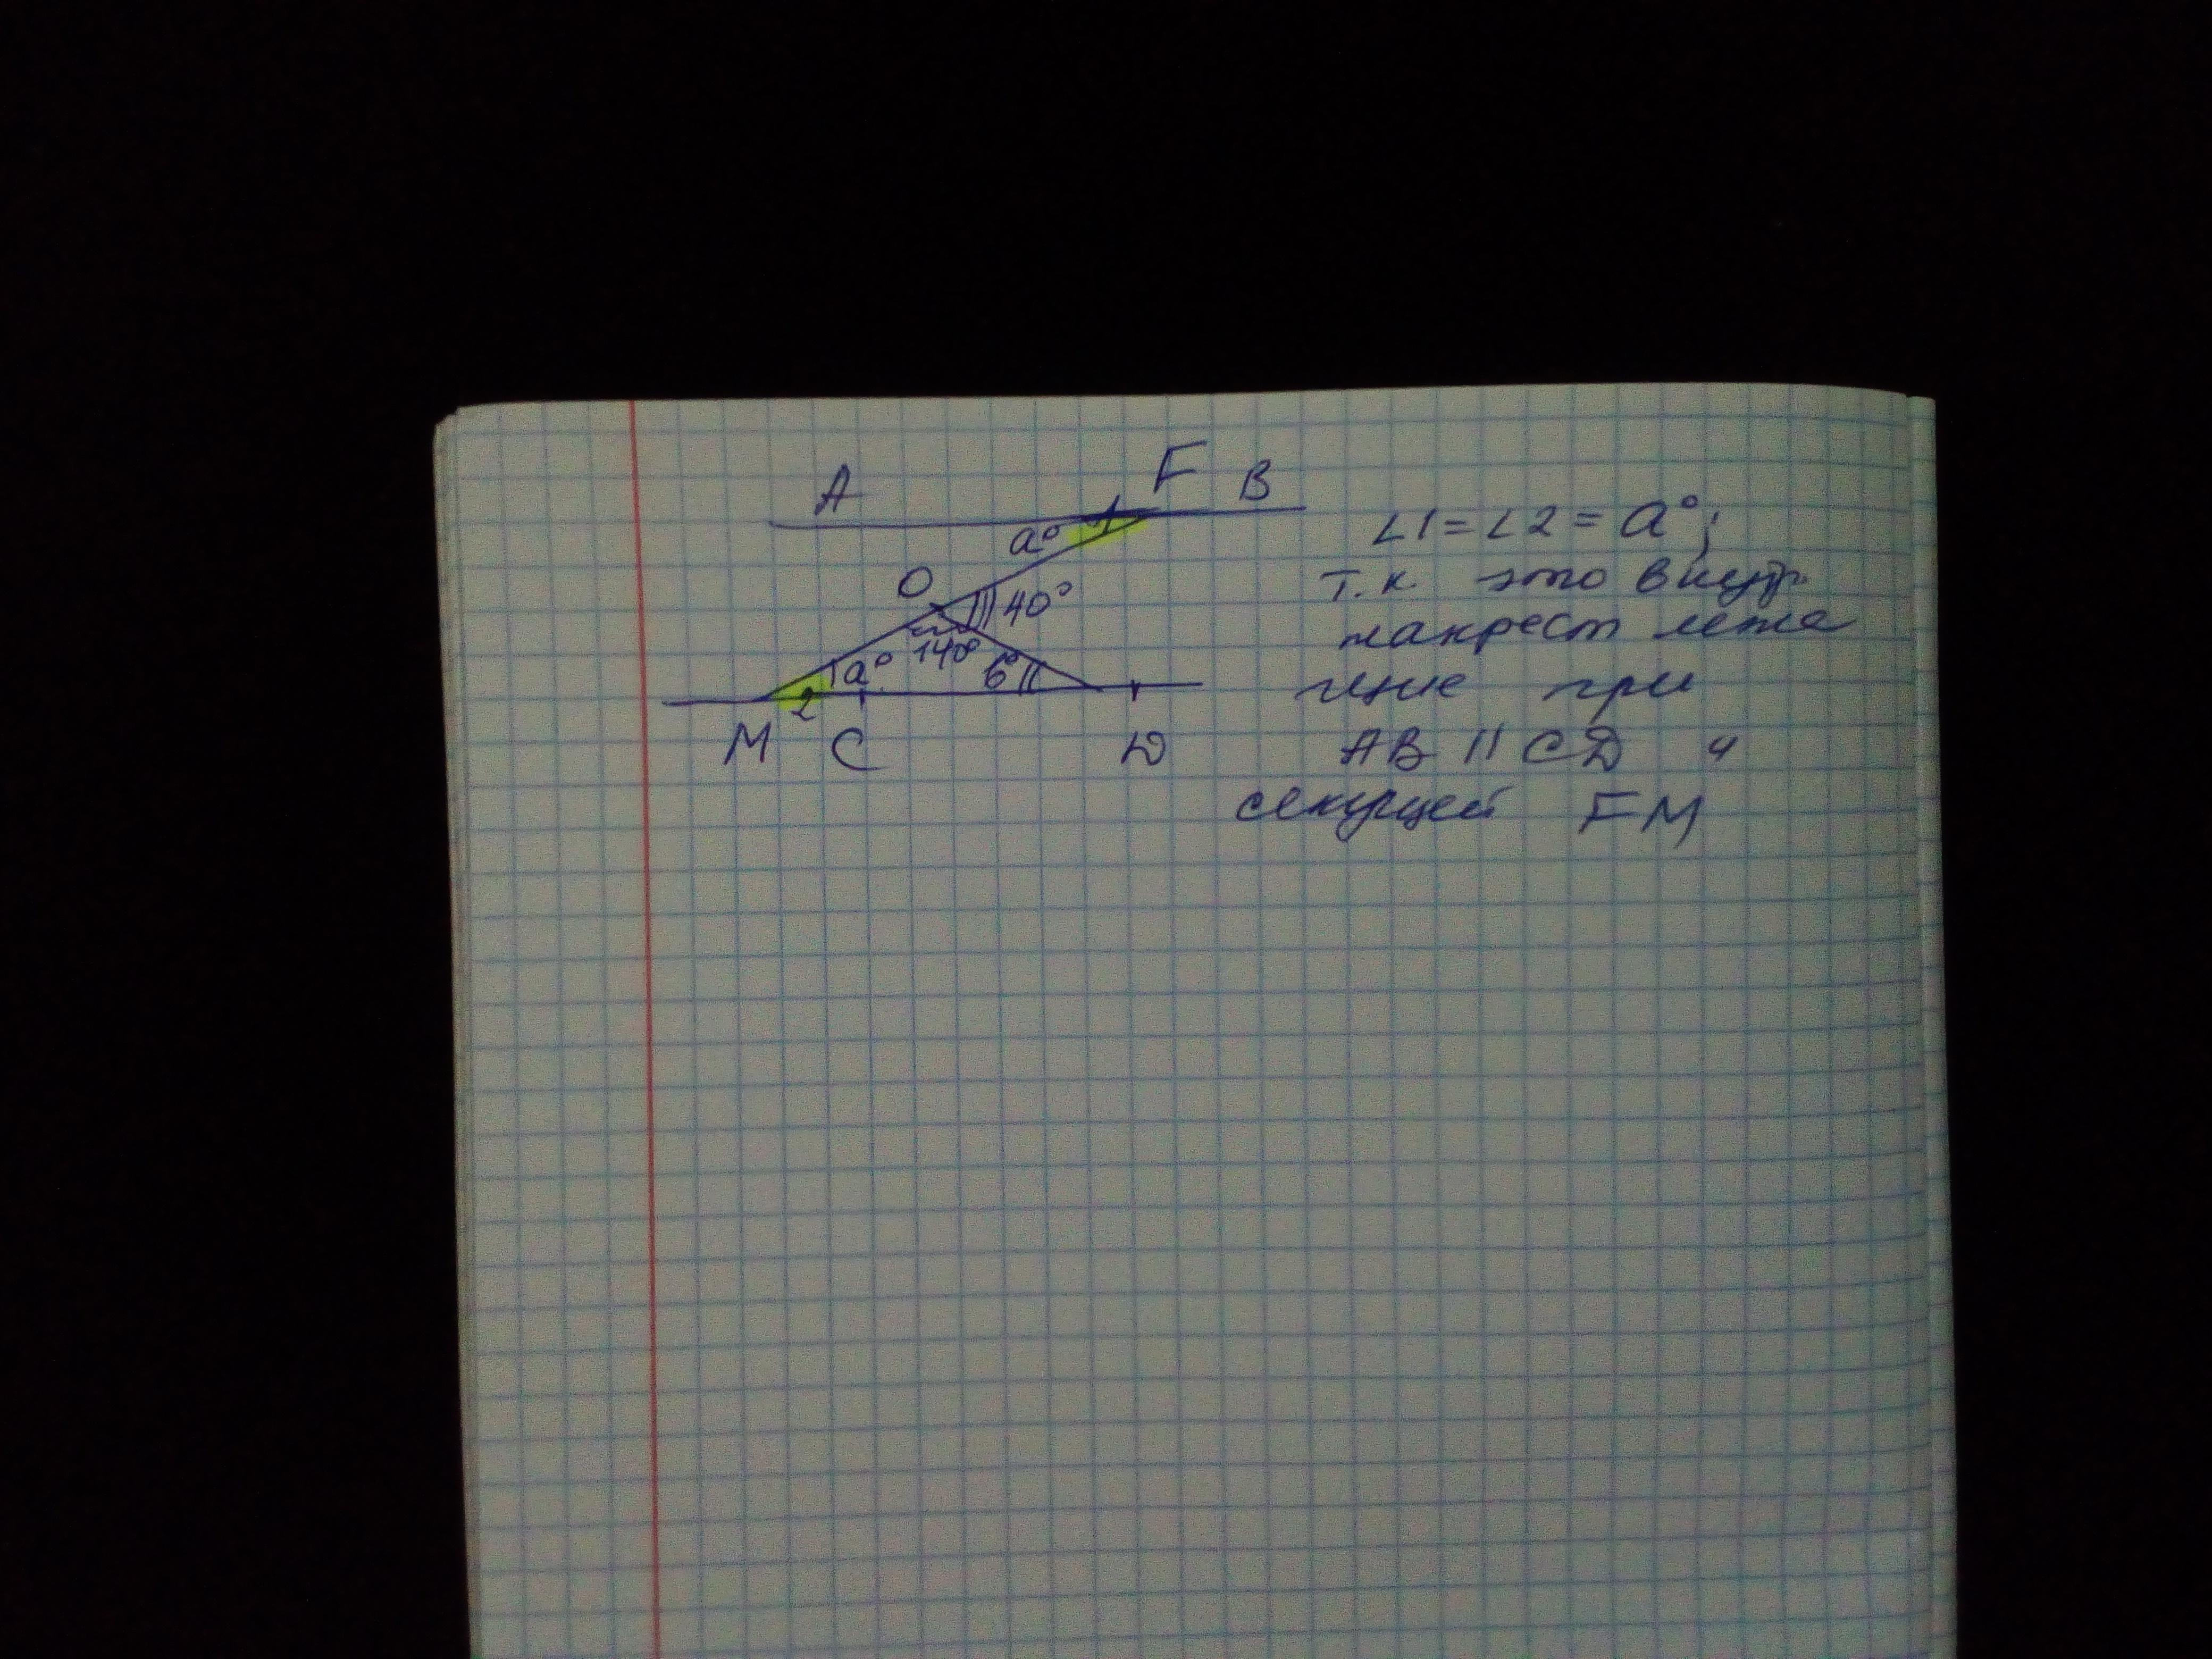 A F B
a° 1
O 40°
a° 140° б°
2
M C D
∠1 = ∠2 = a°;
т.к. это внутр.
накрест лежа
щие при
AB || CD и
секущей FM